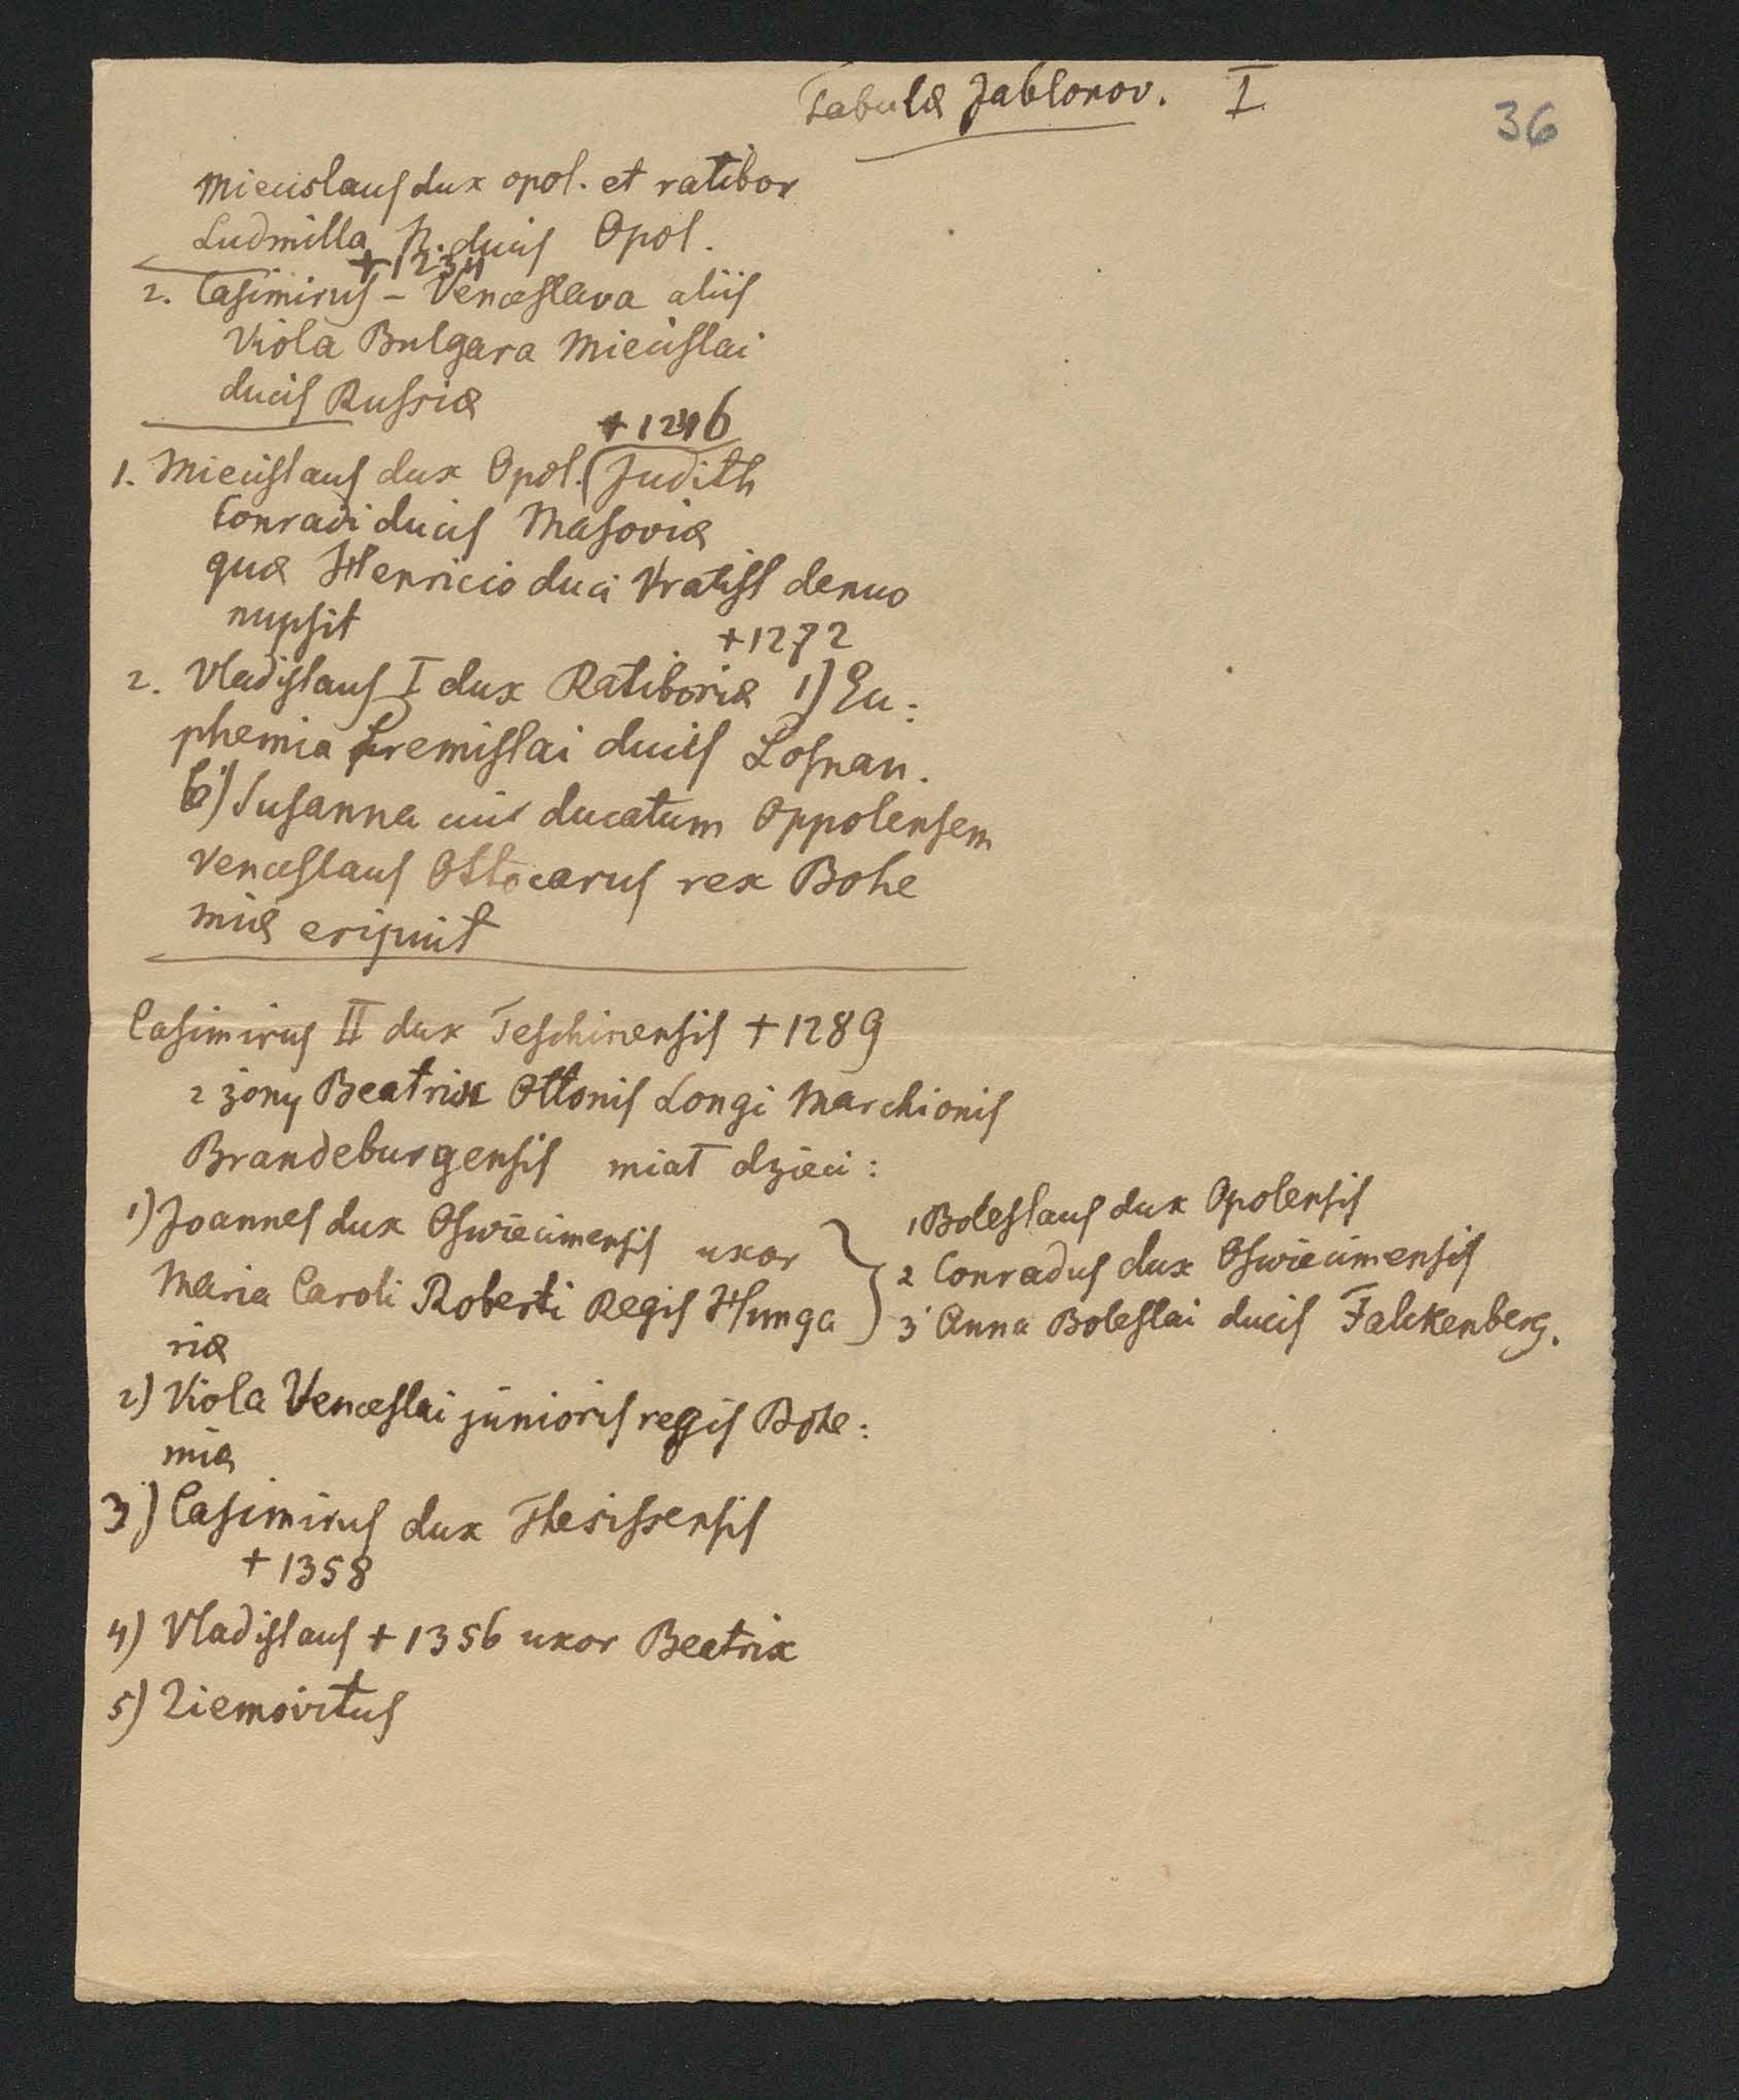 Tabulæ Jablonov. I
36
Miecislaus dux opol. et ratibor
Ludmilla N. ducis Opol.
+1234
2. Casimirus – Venceslava aliis
Viola Bulgara Miecislai
ducis Russiæ
+1246
1. Miecislaus dux Opol. (Judith
Conradi ducis Masoviæ
quæ Henricio duci Vratisl denuo
nupsit
+1272
2. Vladislaus I dux Ratiboriæ 1) Eu:
phemia Premislai ducis Posnan.
b) Susanna cui ducatum Oppolensem
Venceslaus Ottocarus rex Bohe
miæ eripuit
Casimirus II dux Teschinensis +1289
z żony Beatrix Ottonis Longi Marchionis
Brandeburgensis miał dzieci:
1) Joannes dux Oswiecimensis uxor
Maria Caroli Roberti Regis Hunga
riæ
1 Boleslaus dux Opolensis
2 Conradus dux Oswiecimensis
3 Anna Boleslai ducis Falckenberg.
2) Viola Venceslai junioris regis Bohe:
miæ
3) Casimirus dux Thesissensis
+1358
4) Vladislaus +1356 uxor Beatrix
5) Ziemovitus